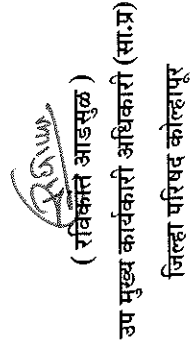 ( रविकांत आडसुळ )
उप मुख्य कार्यकारी अधिकारी (सा.प्र)
जिल्हा परिषद कोल्हापूर